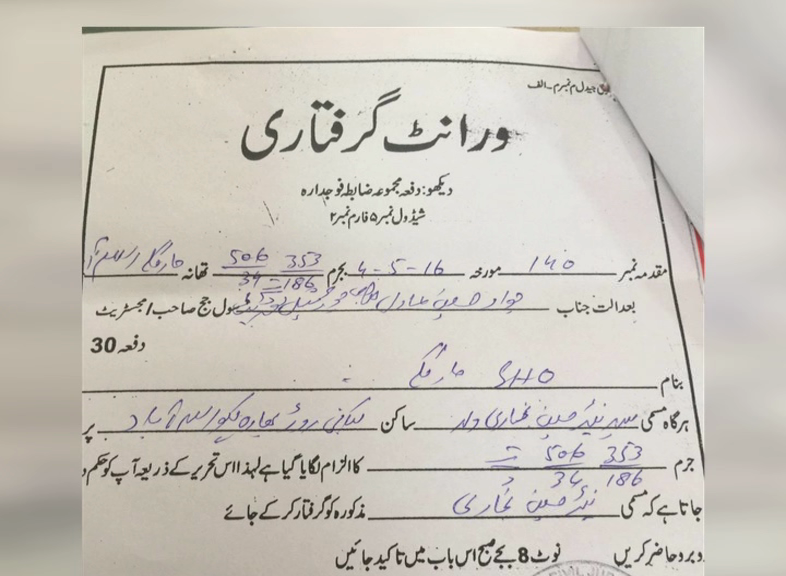 جیدل م نمبرم-الف
ورانٹ گرفتاری
دیکھو: دفعہ مجموعہ ضابطہ فوجدارہ
شیڈول نمبر ۵ فارم نمبر ۲
مقدمہ نمبر 140 مورخہ 4-5-16 بجرم 353 506 186 34 تھانہ مارگلہ
بعدالت جناب جواد حسین عادل سول جج صاحب / مجسٹریٹ
دفعہ 30
بنام SHO مارگلہ
ہرگاہ مسمی سید نیئر حسین بخاری ولد ساکن روڈ بھارہ کہو اسلام آباد پر
جرم 353 506 ت 186 34 کا الزام لگایا گیا ہے لہذا اس تحریر کے ذریعہ آپ کو حکم د
جاتا ہے کہ مسمی نیئر حسین بخاری مذکورہ کو گرفتار کر کے جائے
دبرو حاضر کریں نوٹ 8 بجے صبح اس باب میں تاکید جائیں